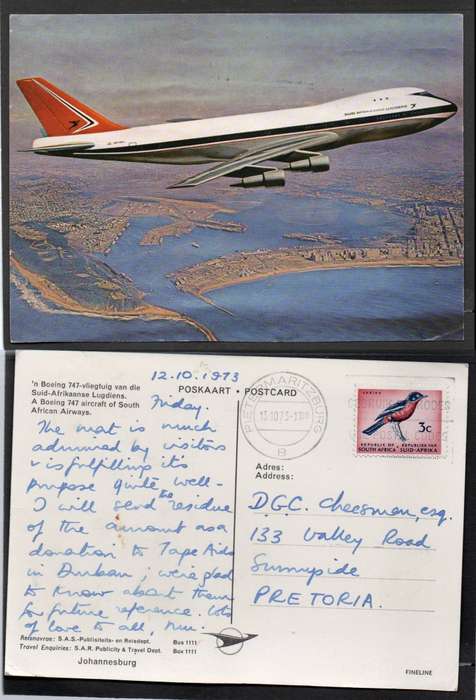 12.10.1973
'n Boeing 747-vliegtuig van die
Suid-Afrikaanse Lugdiens.
A Boeing 747 aircraft of South
African Airways.
POSKAART • POSTCARD
Friday.
The mat is much
admired by visitors
& is fulfilling it's
purpose quite well-
I will send the residue
of the amount as a
donation to Tape Aids
in Durban; we're glad
to know about them
for future reference. Lots
of love to all,
Reisnavrae: S.A.S.-Publisiteits- en Reisdept. Bus 1111
Travel Enquiries: S.A.R. Publicity & Travel Dept. Box 1111
Johannesburg
PIETERMARITZBURG
13.10.73
B
3c
REPUBLIC OF SOUTH AFRICA
REPUBLIEK VAN SUID-AFRIKA
Adres:
Address:
D.G.C. Cheesman, esq.
133 Valley Road
Sunnyside
PRETORIA.
FINELINE